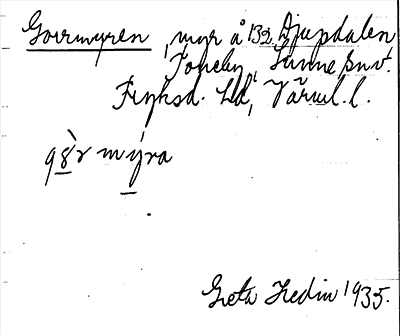 Gorrmyren, myr å 132, Djupdalen
Toneby, Sunne snv.
Fryksd. hd, Värml. l.
Greta Hedin 1935.